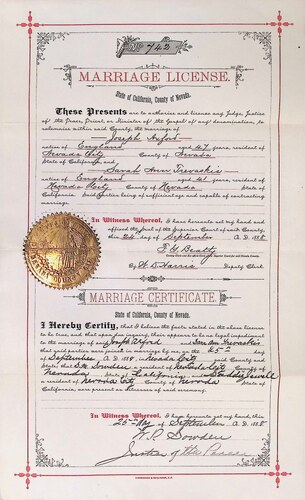 No 742
MARRIAGE LICENSE.
State of California, County of Nevada.
These Presents are to authorize and license any Judge, Justice
of the Peace, Priest, or Minister of the Gospel of any denomination, to
solemnize within said County, the marriage of
Joseph
native of England aged 47 years, resident of
Nevada City County of Nevada
State of California and
Sarah Ann Trevaskis
native of England aged 41 years, resident of
Nevada City County of Nevada
State of California. Said parties being of sufficient age and capable of contracting
marriage.
In Witness Whereof, I have hereunto set my hand and
affixed the Seal of the Superior Court of said County,
this 24 September A. D. 188
Beatty
By W. D. Harris Deputy Clerk
MARRIAGE CERTIFICATE.
State of California, County of Nevada.
I Hereby Certify, that I believe the facts stated in the above license
to be true, and that upon due inquiry, there appears to be no legal impediment
to the marriage of said Joseph and Sara Ann Trevaskis
that said parties were joined in marriage by me, on the 25th day
of September A. D. 188 in Nevada City
Nevada, that Sowden a resident of Nevada City County of
Nevada State of California and Jewell
a resident of Nevada City County of Nevada State of
California, were present as witnesses of said ceremony.
In Witness Whereof, I have hereunto set my hand, this
25th day of September A. D. 188
Sowden
Justice of the Peace